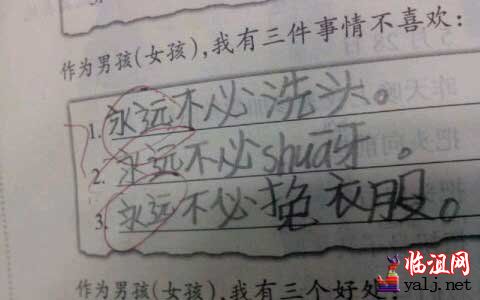 作为男孩(女孩),我有三件事情不喜欢:
1. 永远不必洗头。
2. 永远不必shuā牙。
3. 永远不必挽衣服。
作为男孩(女孩),我有三个好处
临沮网
yalj.net